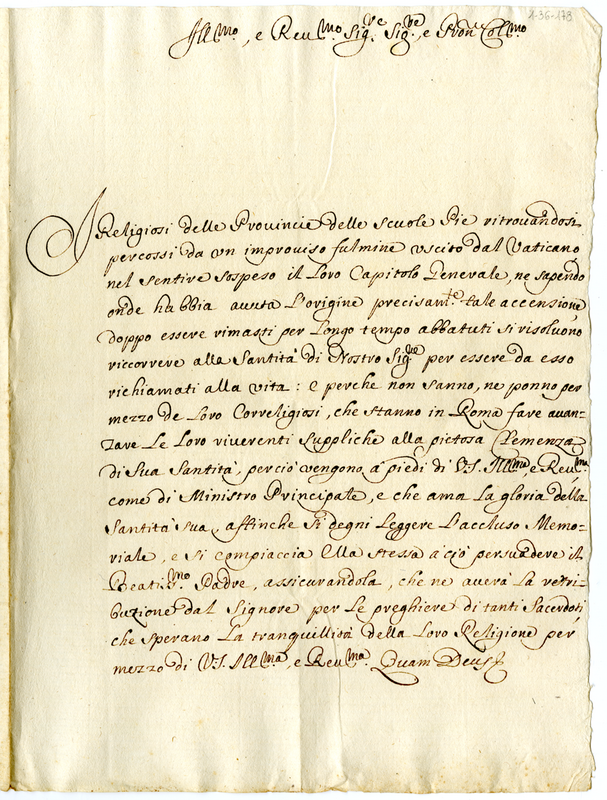 4-36-178
Ill.mo, e Reu.mo Sig.re Sig.re, e Pron Col.mo
I Religiosi delle Provincie delle Scuole Pie ritrouandosi
percossi da un improuiso fulmine uscito dal Vaticano,
nel sentire sospeso il Loro Capitolo Generale, ne sapendo
onde habbia auuta L'origine precisam.te tale accensione
doppo essere rimasti per Longo tempo abbatuti si risoluono
riccorrere alla Santità di Nostro Sig.re per essere da esso
richiamati alla vita: e perche non sanno, ne ponno per
mezzo de Loro Correligiosi, che stanno in Roma fare auan-
zare Le Loro riuerenti suppliche alla pietosa Clemenza
di Sua Santità, perciò vengono à piedi di V.S. Ill.ma e Reu.ma
come di Ministro Principale, e che ama La gloria della
Santità Sua, affinche si degni Leggere L'accluso Memo-
riale, e si compiaccia Ella stessa à ciò persuadere il
Beatis.mo Padre, assicurandola, che ne auerà La retri-
buzione dal Signore per Le preghiere di tanti Sacerdoti,
che sperano La tranquillità della Loro Religione per
mezzo di V.S. Ill.ma, e Reu.ma Quam Deus